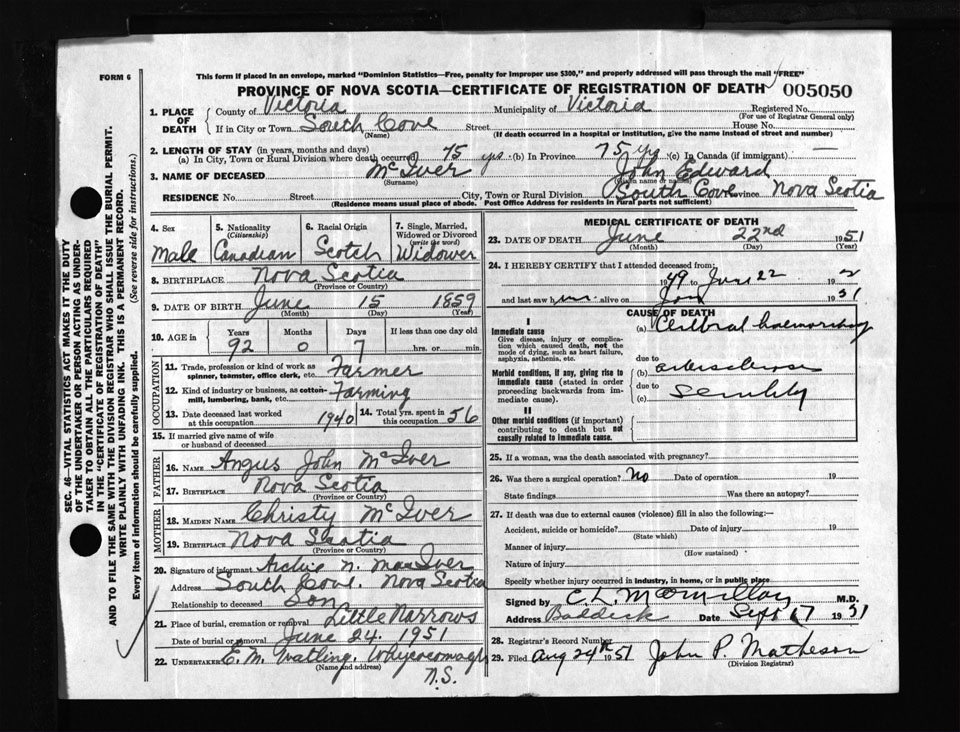 FORM 6
This form if placed in an envelope, marked "Dominion Statistics—Free, penalty for improper use $300," and properly addressed will pass through the mail "FREE"
PROVINCE OF NOVA SCOTIA—CERTIFICATE OF REGISTRATION OF DEATH 005050
1. PLACE OF DEATH County of Victoria Municipality of Victoria Registered No.
(For use of Registrar General only)
If in City or Town South Cove Street House No.
(Name) (If death occurred in a hospital or institution, give the name instead of street and number)
2. LENGTH OF STAY (in years, months and days)
(a) In City, Town or Rural Division where death occurred) 75 yrs (b) In Province 75 yrs (c) In Canada (if immigrant) —
3. NAME OF DECEASED McIver John Edward
(Surname) (Given name or names)
RESIDENCE No. Street City, Town or Rural Division South Cove Province Nova Scotia
(Residence means usual place of abode. Post Office Address for residents in rural parts not sufficient)
4. Sex 5. Nationality (Citizenship) 6. Racial Origin 7. Single, Married, Widowed or Divorced (write the word)
Male Canadian Scotch Widower
8. BIRTHPLACE Nova Scotia
(Province or Country)
9. DATE OF BIRTH June 15 1859
(Month) (Day) (Year)
10. AGE in Years Months Days If less than one day old
92 0 7 hrs. or min.
OCCUPATION
11. Trade, profession or kind of work as spinner, teamster, office clerk, etc. Farmer
12. Kind of industry or business, as cotton-mill, lumbering, bank, etc. Farming
13. Date deceased last worked at this occupation 1940 14. Total yrs. spent in this occupation 56
15. If married give name of wife or husband of deceased
FATHER
16. NAME Angus John McIver
17. BIRTHPLACE Nova Scotia
(Province or Country)
MOTHER
18. MAIDEN NAME Christy McIver
19. BIRTHPLACE Nova Scotia
(Province or Country)
20. Signature of informant Archie N. MacIver
Address South Cove. Nova Scotia
Relationship to deceased Son
21. Place of burial, cremation or removal Little Narrows
Date of burial or removal June 24. 1951
22. UNDERTAKER E. M. Watling. Whycocomagh
(Name and address)
N.S.
MEDICAL CERTIFICATE OF DEATH
23. DATE OF DEATH June 22nd 1951
(Month) (Day) (Year)
24. I HEREBY CERTIFY that I attended deceased from:
1949 to June 22 19
and last saw him alive on
CAUSE OF DEATH
I
Immediate cause
Give disease, injury or complication which caused death, not the mode of dying, such as heart failure, asphyxia, asthenia, etc.
(a) Cerebral haemorrhage
due to
Morbid conditions, if any, giving rise to immediate cause (stated in order proceeding backwards from immediate cause).
(b) arteriosclerosis
due to
(c) Senility
II
Other morbid conditions (if important) contributing to death but not causally related to immediate cause.
25. If a woman, was the death associated with pregnancy?
26. Was there a surgical operation? No Date of operation 19
State findings Was there an autopsy?
27. If death was due to external causes (violence) fill in also the following:—
Accident, suicide or homicide? Date of injury 19
(State which)
Manner of injury
(How sustained)
Nature of injury
Specify whether injury occurred in industry, in home, or in public place
Signed by C. L. McMillan M.D.
Address Baddeck Date Sept 17 1951
28. Registrar's Record Number
29. Filed Aug 24th 1951 John P. Matheson
(Division Registrar)
SEC. 46—VITAL STATISTICS ACT MAKES IT THE DUTY
OF THE UNDERTAKER OR PERSON ACTING AS UNDER-
TAKER TO OBTAIN ALL THE PARTICULARS REQUIRED
IN THE "CERTIFICATE OF REGISTRATION OF DEATH"
AND TO FILE THE SAME WITH THE DIVISION REGISTRAR WHO SHALL ISSUE THE BURIAL PERMIT.
WRITE PLAINLY WITH UNFADING INK. THIS IS A PERMANENT RECORD.
Every item of information should be carefully supplied. (See reverse side for instructions.)